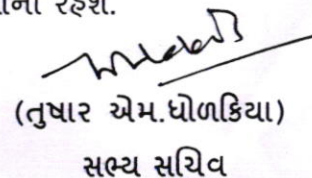 રહેશે.
(તુષાર એમ.ધોળકિયા)
સભ્ય સચિવ